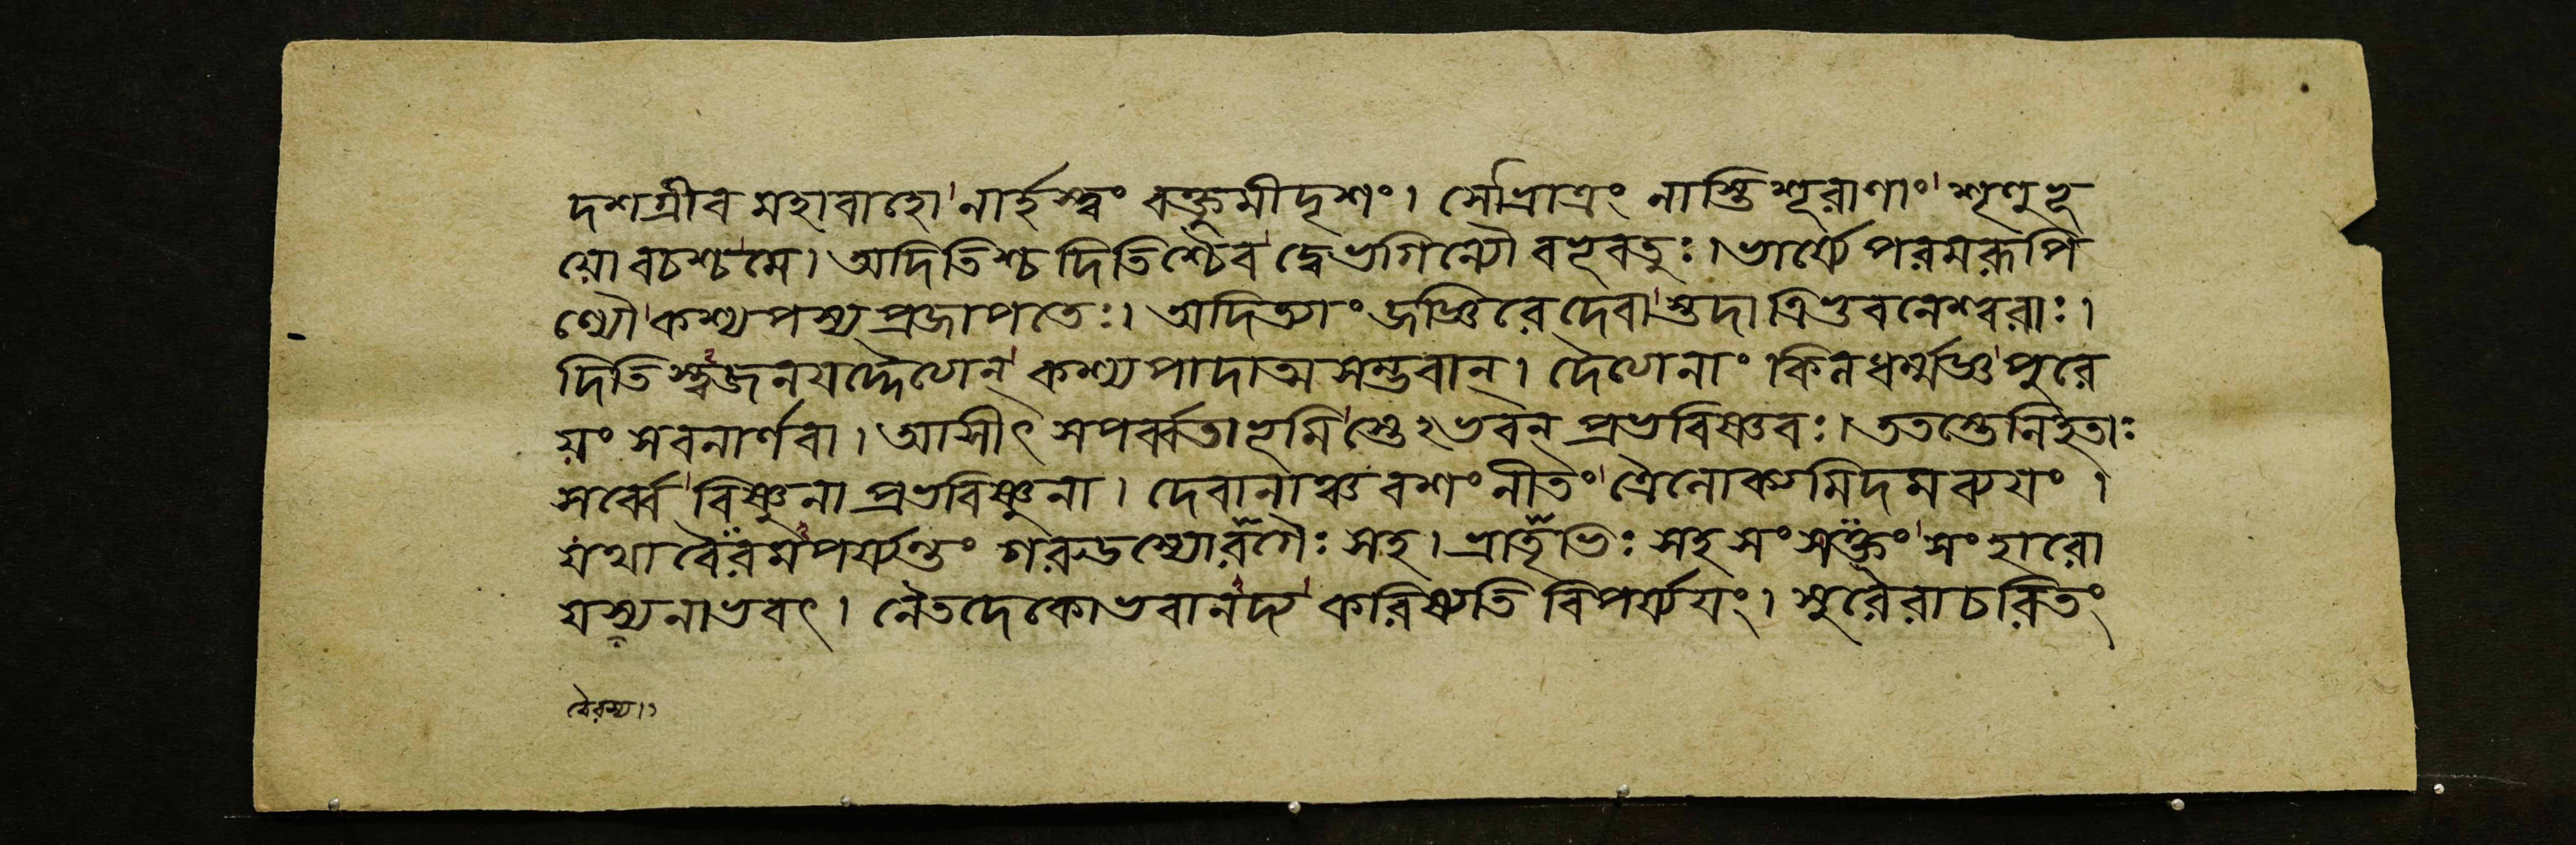 দশগ্রীব মহাবাহো নার্হস্ত্বং বক্তুমীদৃশং। সৌভ্রাত্রং নাস্তি শূরাণাং শৃণু ভূ
য়ো বচশ্চ মে। অদিতিশ্চ দিতিশ্চৈব দ্বে ভগিন্যৌ বভূবতুঃ। ভার্য্যে পরমরূপি
ণ্যৌ কশ্যপস্য প্রজাপতেঃ। অদিত্যাং জজ্ঞিরে দেবাস্তদা ত্রিভুবনেশ্বরাঃ।
দিতিস্ত্বজনয়দ্দৈত্যান্ কশ্যপাদাত্মসম্ভবান্। দৈত্যানাং কিল ধর্ম্মজ্ঞ পুরে
য়ং সবনার্ণবা। আসীৎ সপর্ব্বতা ভূমিস্তেঽভবন্ প্রভবিষ্ণবঃ। ততস্তে নিহতাঃ
সর্ব্বে বিষ্ণুনা প্রভবিষ্ণুনা। দেবানাঞ্চ বশং নীতং ত্রৈলোক্যমিদমব্যয়ং।
যথা বৈরমপর্য্যন্তং গরুডস্যোরগৈঃ সহ। ভ্রাতৃভিঃ সহ সংসক্তং সংহারো
যস্য নাভবৎ। নৈতদেকো ভবানদ্য করিষ্যতি বিপর্য্যয়ং। সুরৈরাচরিতং
বৈরস্য।।